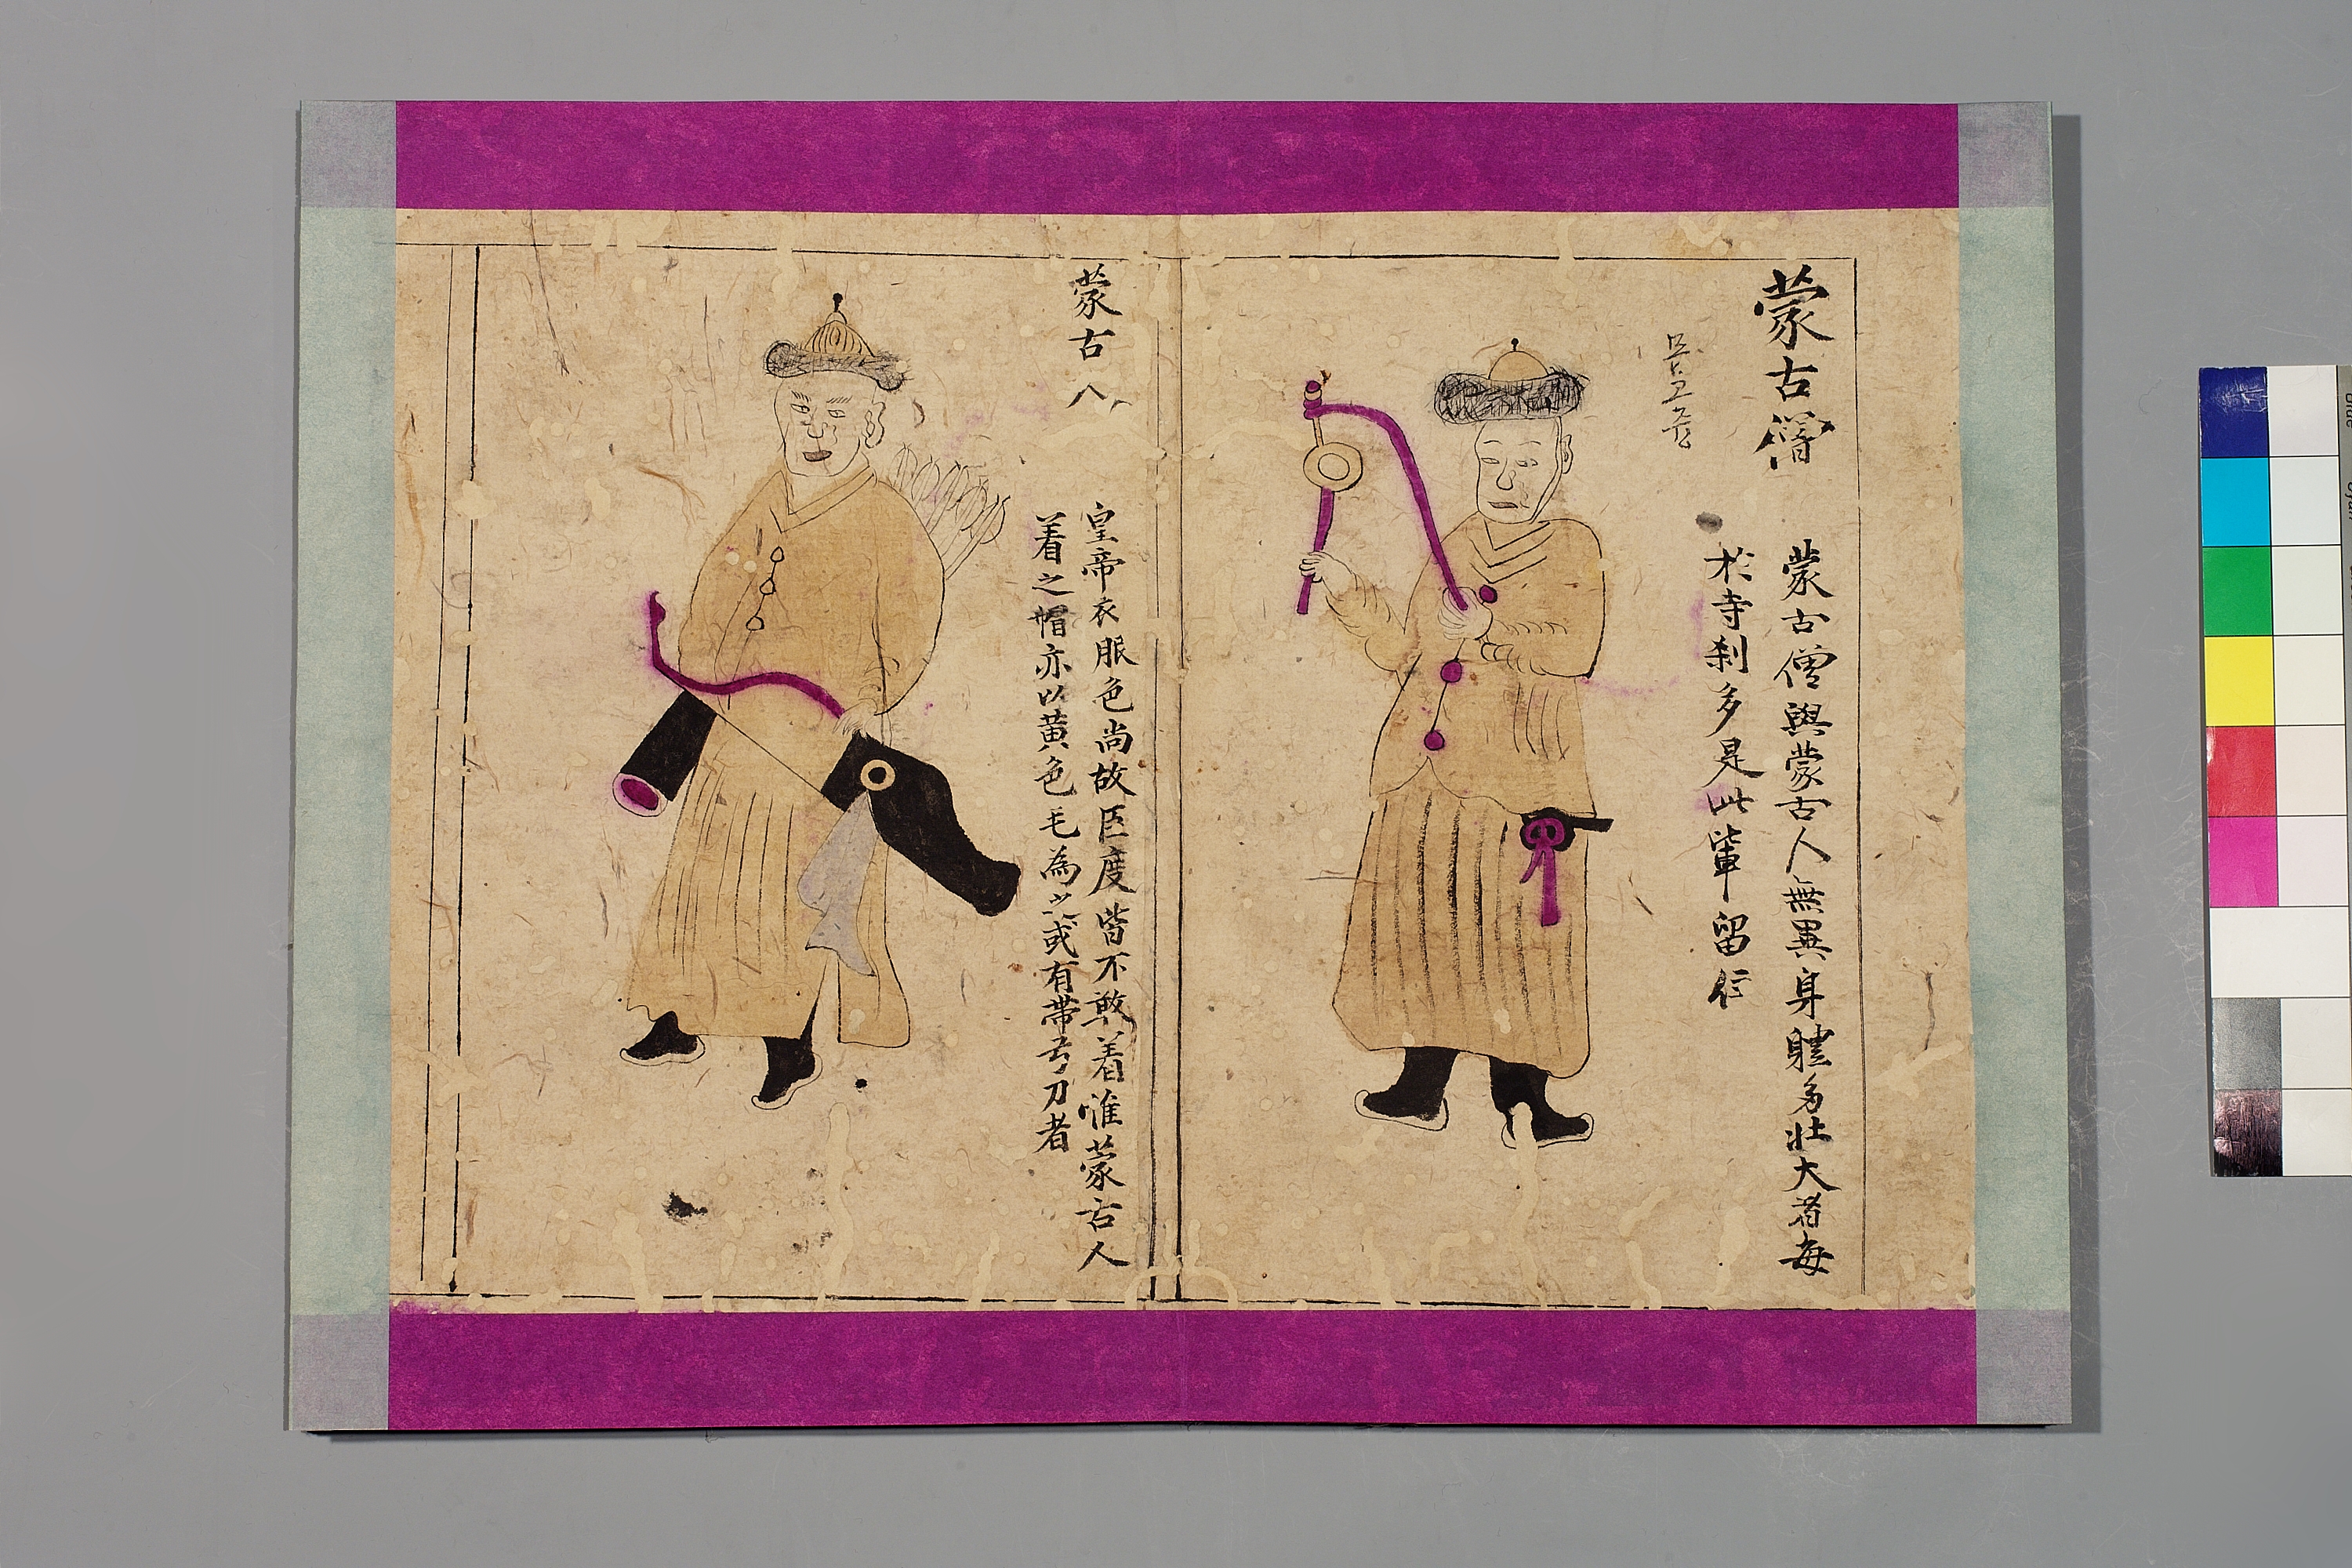 蒙古僧
蒙古僧與蒙古人無異身軆多壯大者每
於寺刹多是此輩留住
蒙古人
皇帝衣服色尚故臣度皆不敢着惟蒙古人
着之帽亦以黄色毛為之或有帶弓刀者